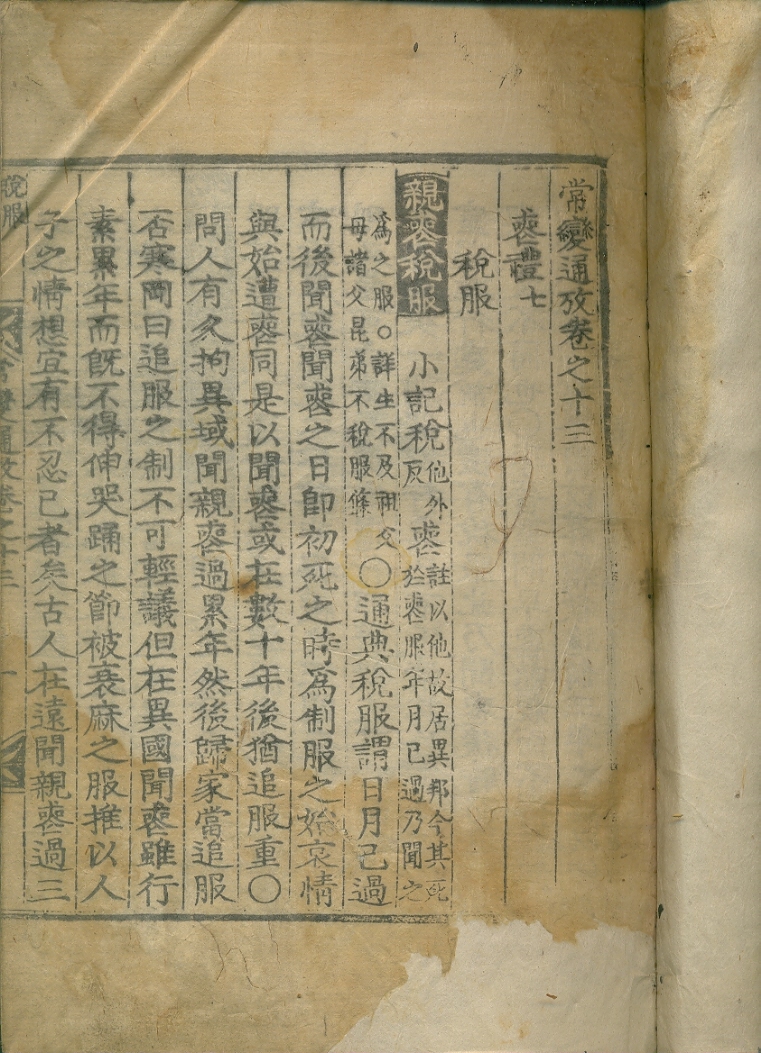 常變通攷卷之十三
喪禮七
稅服
親喪稅服 小記稅他外反喪註以他故居異邦今其死扵喪服年月已過乃聞之
爲之服○詳生不及祖父母諸父昆弟不稅服條○通典稅服謂日月已過
而後聞喪聞喪之日卽初死之時爲制服之始哀情
與始遭喪同是以聞喪或在數十年後猶追服重○
問人有久拘異域聞親喪過累年然後歸家當追服
否寒岡曰追服之制不可輕議但在異國聞喪雖行
素累年而旣不得伸哭踊之節被衰麻之服推以人
子之情想宜有不忍已者矣古人在遠聞親喪過三
稅服 常變通攷卷之十三 一